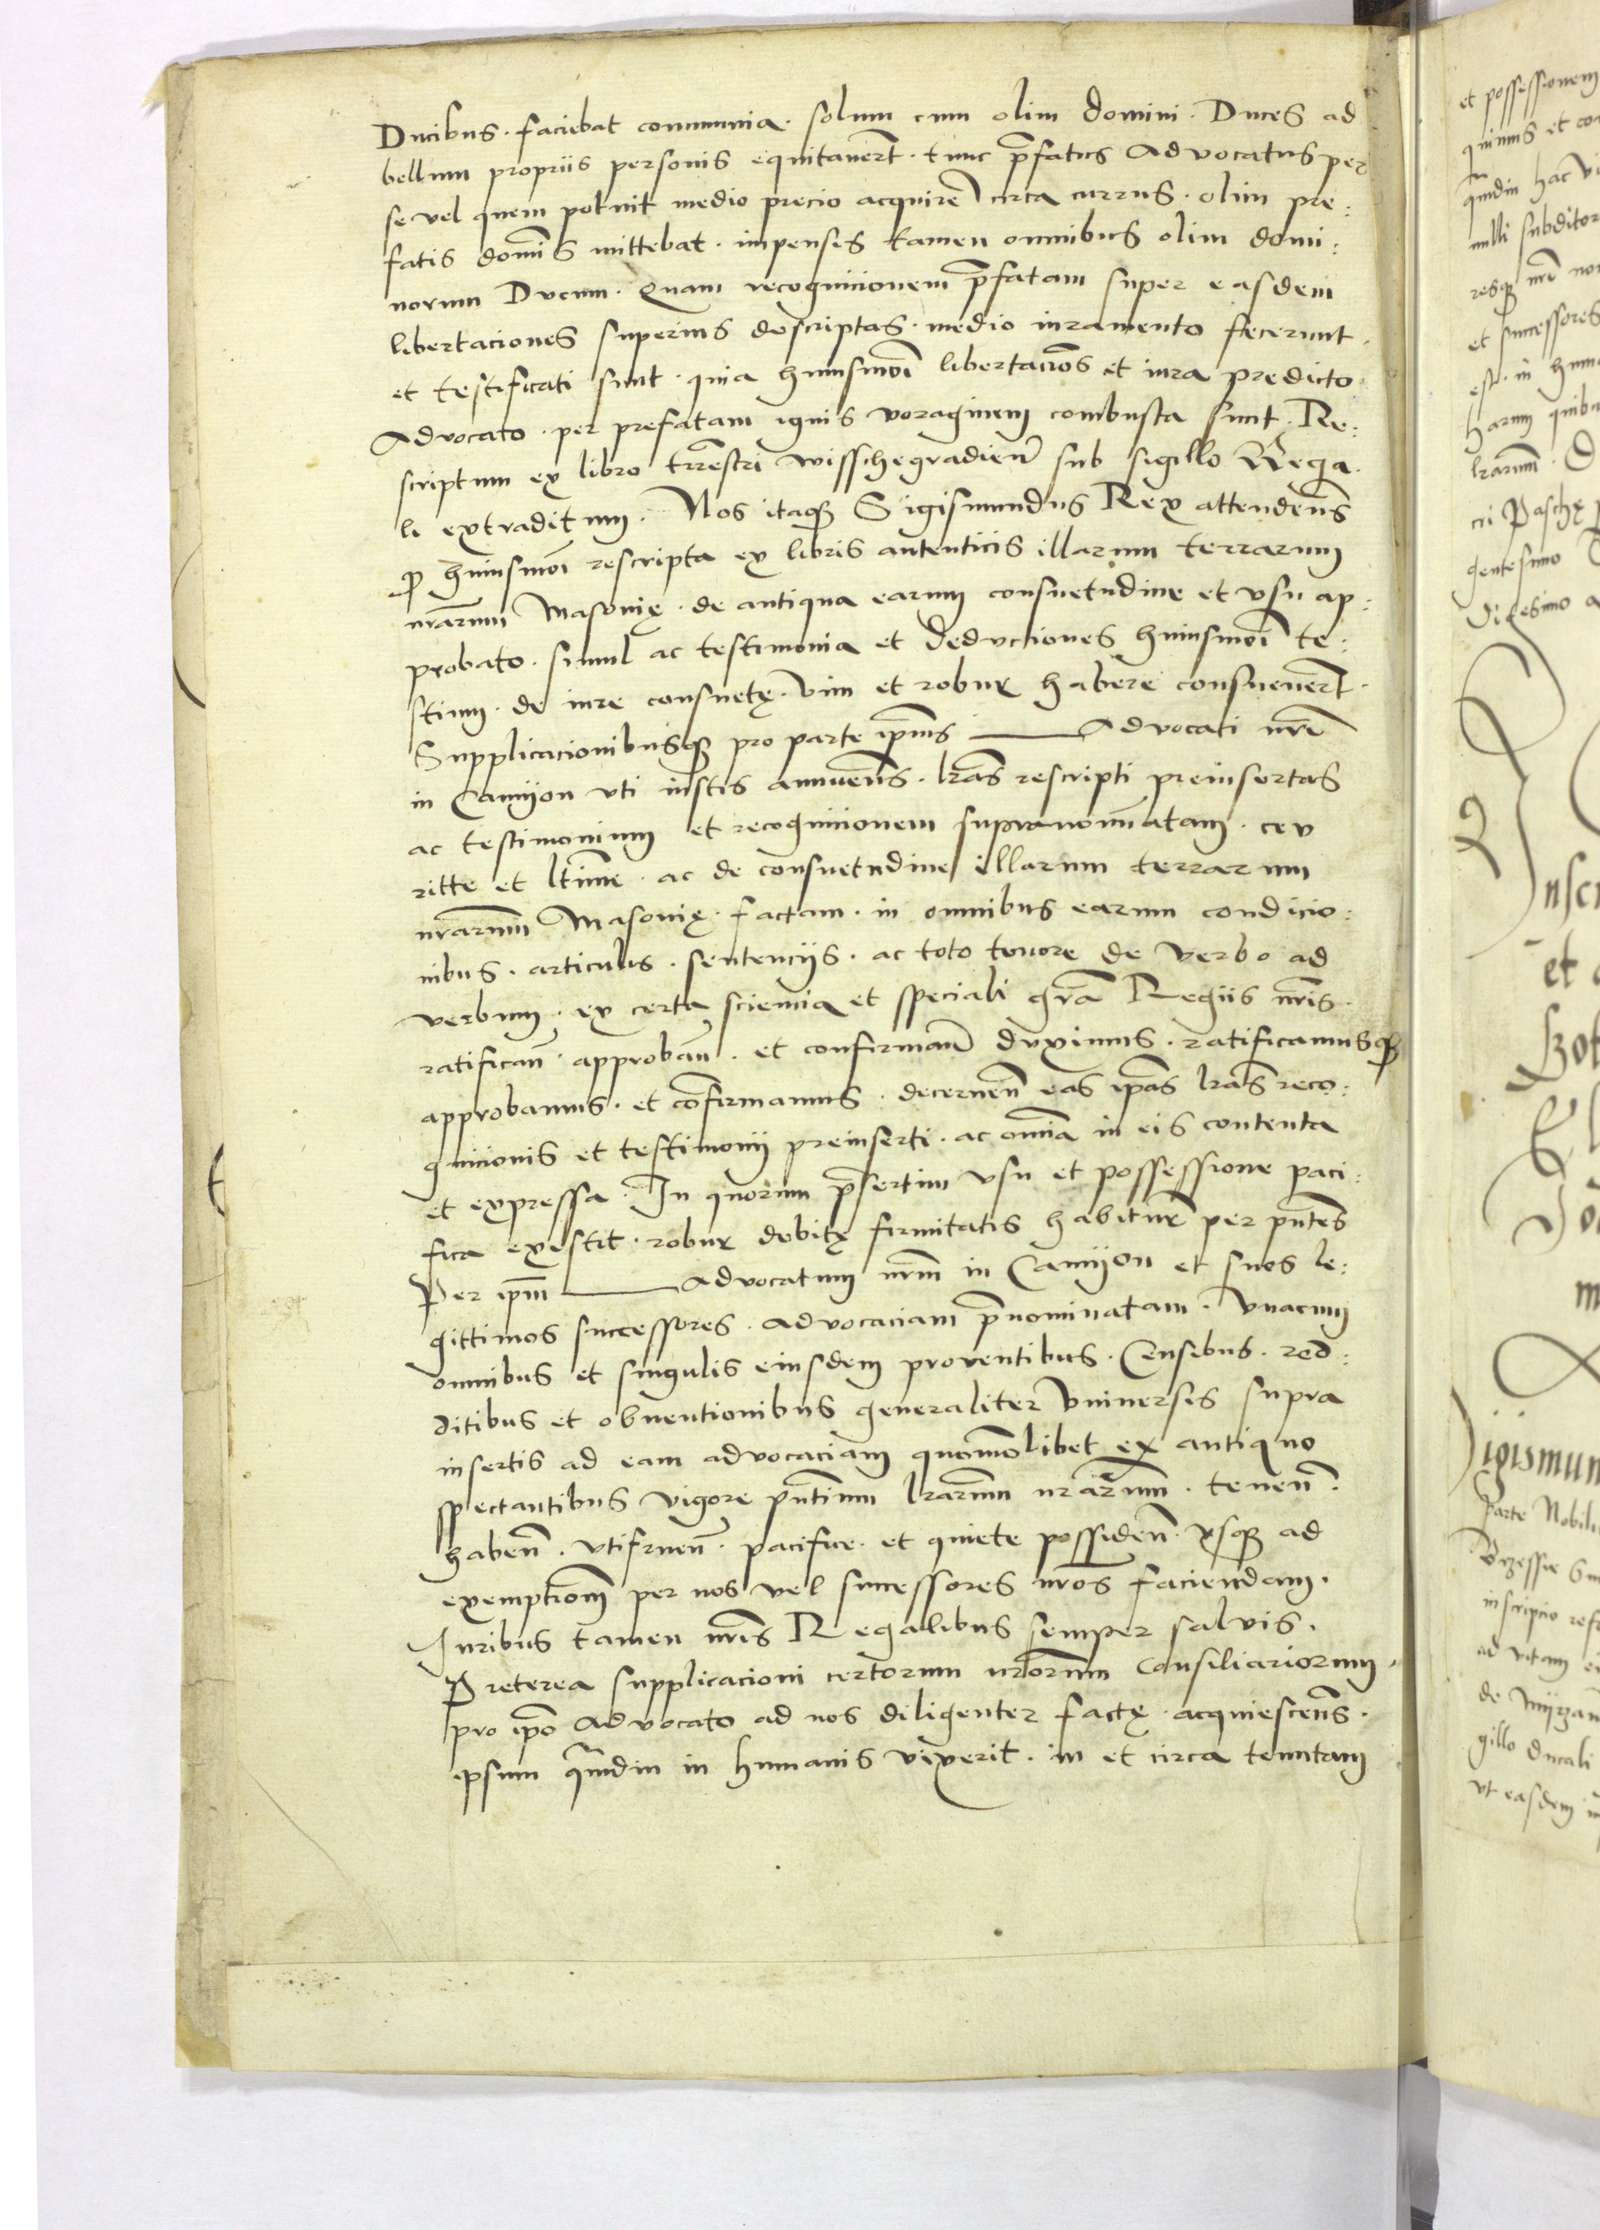 Ducibus · faciebat communia · solum cum olim domini · Duces ad
bellum propriis personis equitauert̃ · tunc p̃fatus Advocatus per
se vel quem potuit medio precio acquirẽ circa currus · olim pre:
fatis domĩs mittebat · impensis tamen omnibus olim domi:
norum Ducum · Quam recognicionem p̃fatam super easdem
libertaciones superius descriptas · medio iuramento fecerunt ·
et testificati sunt · quia huiusmõi libertacões et iura predicto ·
Advocato · per prefatam ignis voraginem combusta sunt · Re:
scriptum ex libro tr̃restri wisschegradieñ sub sigillo Rega ·
li extraditum · Nos itaqȝ Sigismundus Rex attendeñs
qȝ huiusmõi rescripta ex libris autenticis illarum terrarum
nr̃arum Masovię · de antiqua earum consuetudine et vsu ap:
probato · simul ac testimonia et deductiones huiusmõi te:
stium · de iure consuetę · vim et robur habere consueuert̃ ·
Supplicacionibusqȝ pro parte ip̃ius —— Advocati nr̃i
in Camyon vti iustis annueñs · lr̃as rescripti preinsertas
ac testimonium et recognicionem supranom̃atam · ceu
ritte et ltĩme · ac de consuetudine illarum terrarum
nr̃arum Masovię · factam · in omnibus earum condicio:
nibus · articulis · sentenciis · ac toto tenore de verbo ad
verbum · ex certa sciencia et speciali gr̃a Regiis nr̃is ·
ratificañ · approbañ · et confirmañ duximus · ratificamusqȝ
approbamus · et cõfirmamus · decerneñ eas ip̃as lr̃as reco:
gnicionis et testimonii preinserti · ac om̃ia in eis contenta
et expressa · In quorum p̃sertim vsu et possessione paci:
fica existit · robur debitę firmitatis habiturę per pñtes
Per ip̃m —— Advocatum nr̃m in Camyon et suos le:
gittimos successores · advocaciam p̃nominatam · vnacum
omnibus et singulis eiusdem proventibus · Censibus · red:
ditibus et obventionibus generaliter vniversis supra
insertis ad eam advocaciam quomõlibet ex antiquo
spectantibus vigore pñtium lr̃arum nr̃arum · teneñ ·
habeñ · vtifrueñ · pacifice · et quiete possideñ · vsqȝ ad
exemptionẽ per nos vel successores nr̃os faciendam ·
Iuribus tamen nr̃is Regalibus semper salvis ·
Preterea supplicacioni certorum nr̃orum Consiliariorum ·
pro ip̃o Advocato ad nos diligenter factę · acquiesceñs ·
ipsum q̃mdiu in humanis vixerit · in et circa tenutam